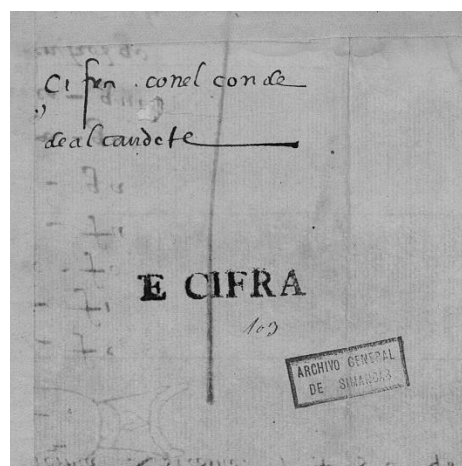 Cifra con el conde
de alcaudete
E CIFRA
103
ARCHIVO GENERAL
DE SIMANCAS